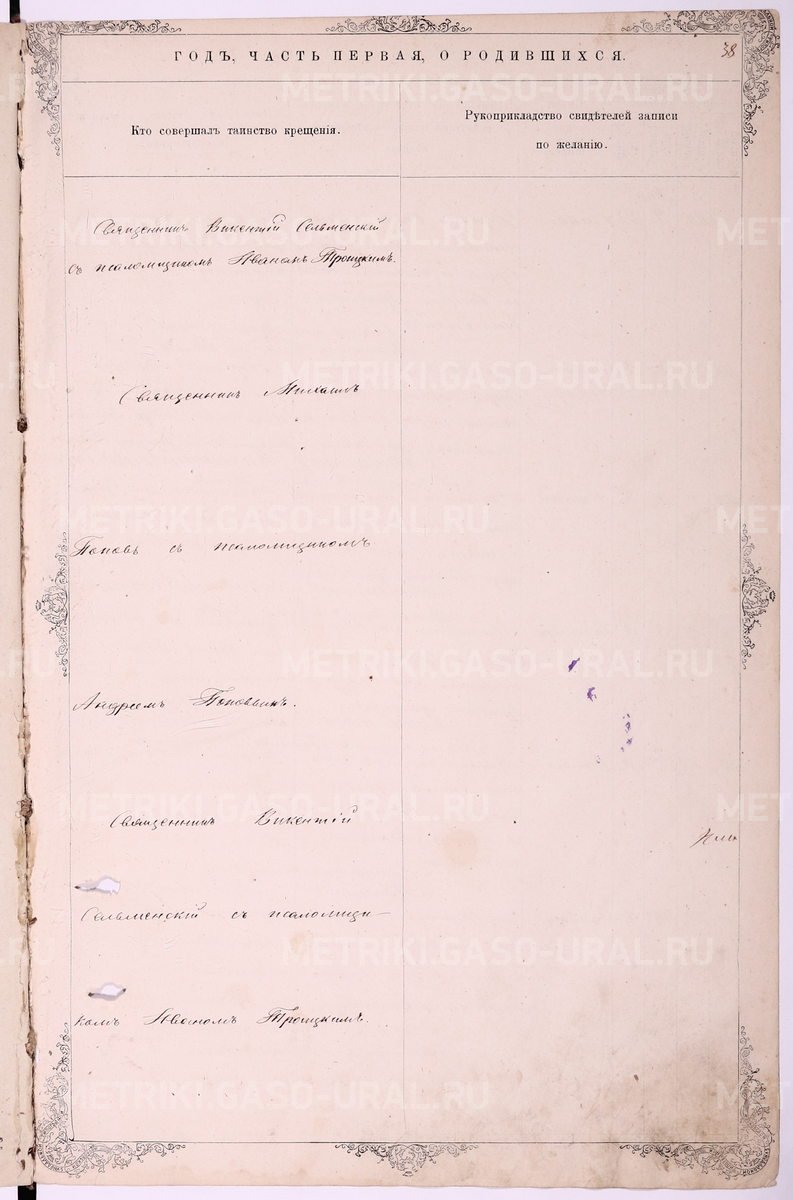 38
ГОДЪ, ЧАСТЬ ПЕРВАЯ, О РОДИВШИХСЯ.
Кто совершалъ таинство крещенія.
Рукоприкладство свидѣтелей записи
по желанію.
Священникъ Викентій Сельменскій
съ псаломщикомъ Иваномъ Троицкимъ.
Священникъ Михаилъ
Поповъ съ псаломщикомъ
Андреемъ Поповымъ.
Священникъ Викентій
Сельменскій съ псаломщи-
комъ Иваномъ Троицкимъ.
METRIKI.GASO-URAL.RU